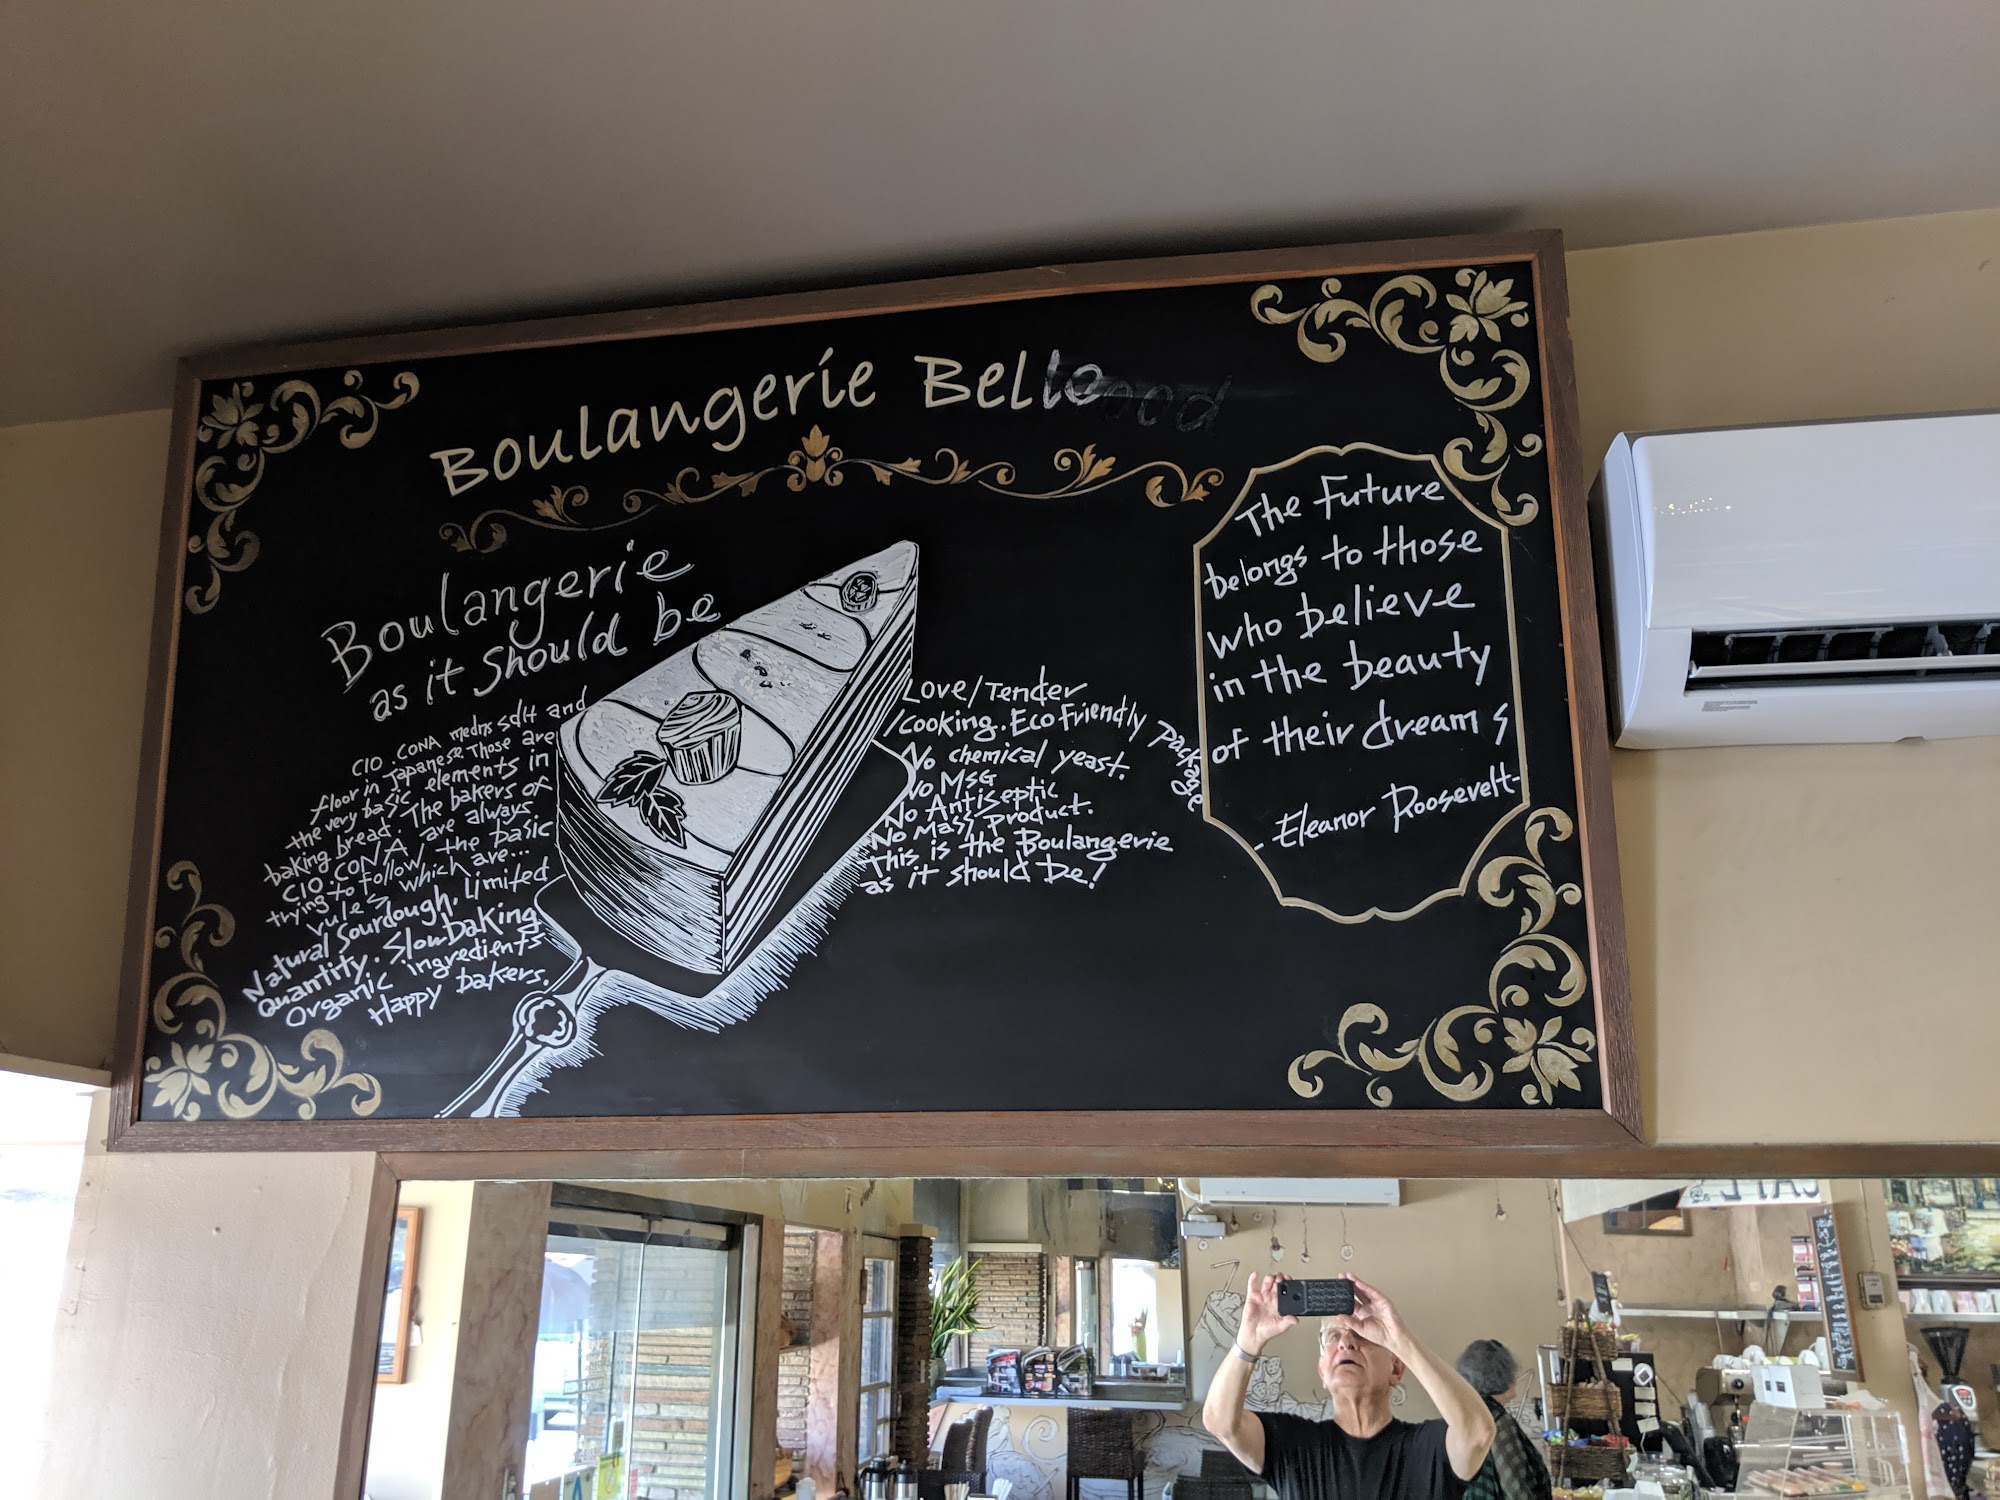 Boulangerie Bello
Boulangerie
as it should be
CIO. CONA means salt and
floor in Japanese Those are
the very basic elements in
baking bread. The bakers of
CIO. CONA are always
trying to follow the basic
rules which are...
Natural Sourdough. Limited
Quantity. Slow baking
Organic ingredients
Happy bakers.
Love/Tender
Cooking. Eco Friendly Package
No chemical yeast.
No MSG
No Antiseptic
No Mass Product.
This is the Boulangerie
as it should be!
The Future
belongs to those
who believe
in the beauty
of their dreams
- Eleanor Roosevelt-